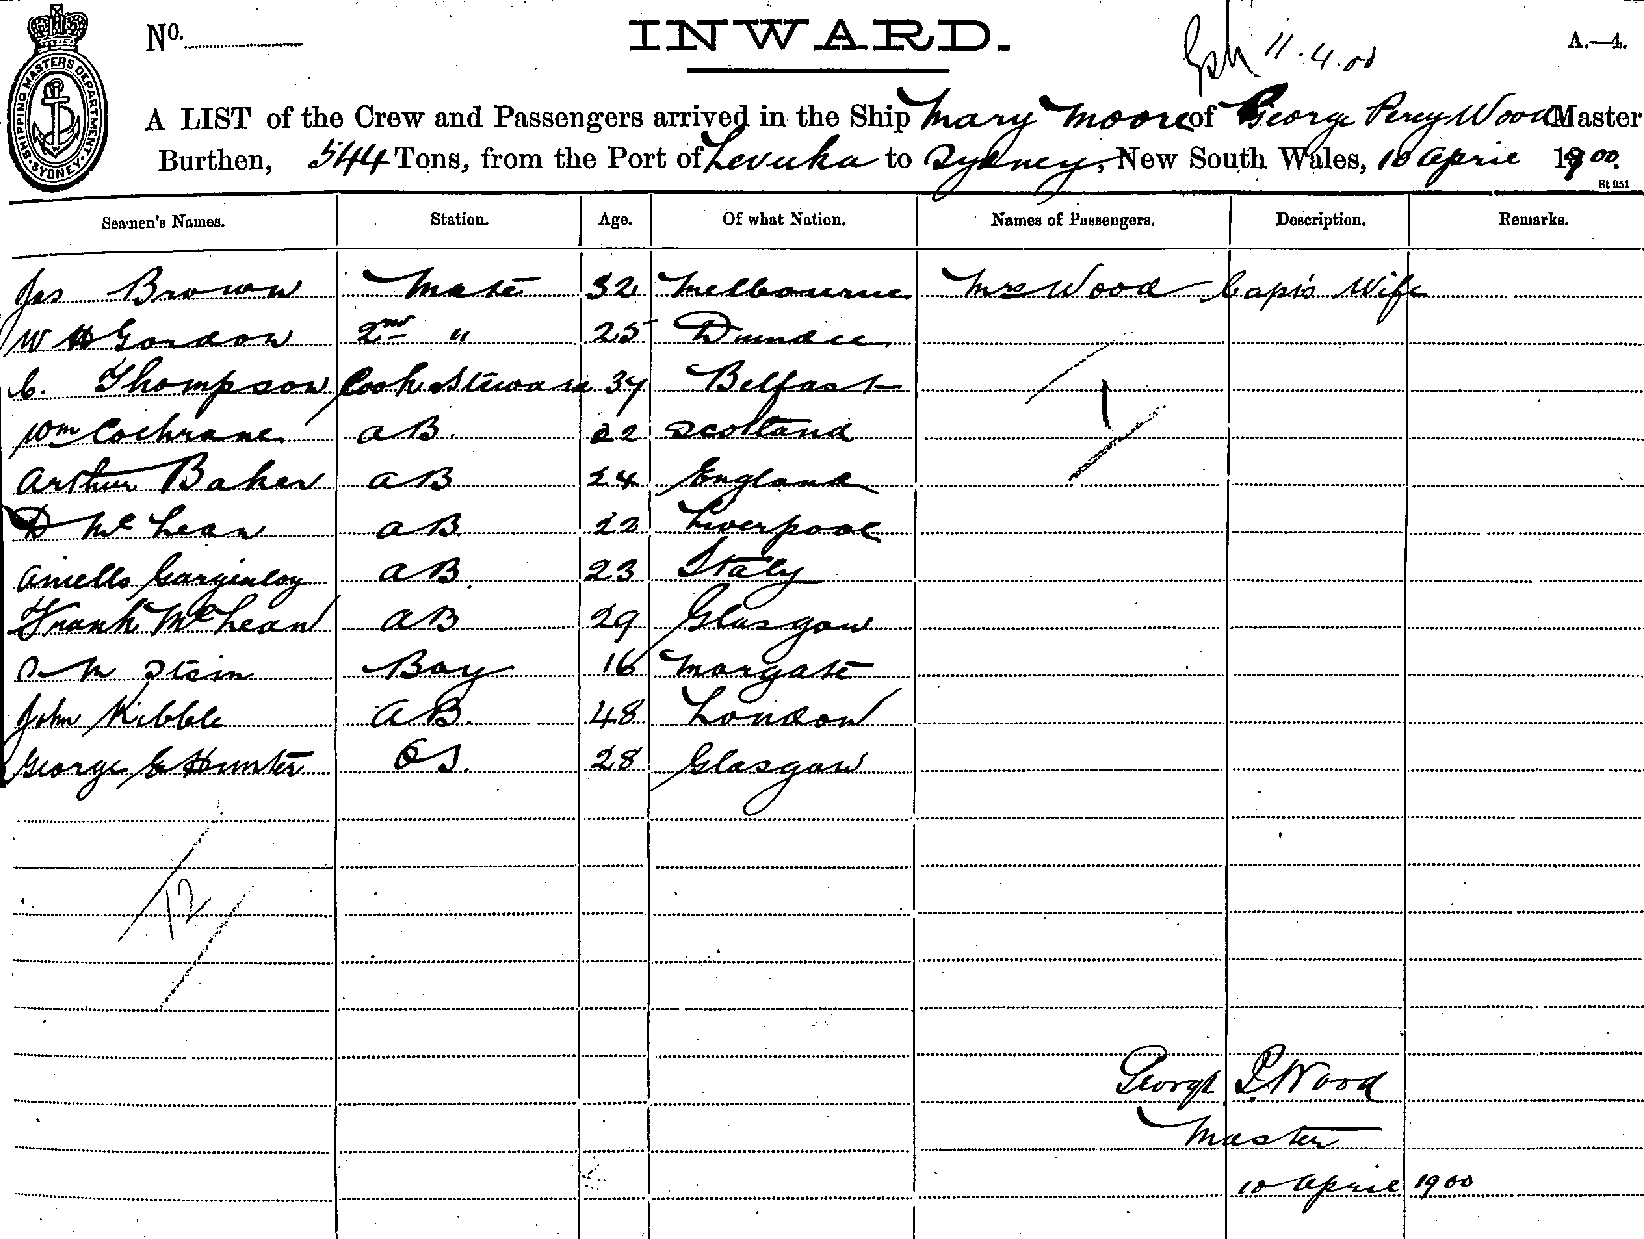 No.
INWARD.
11.4.00
A.—4.
SHIPPING MASTERS DEPARTMENT SYDNEY
A LIST of the Crew and Passengers arrived in the Ship Mary Moore of George Percy Wood Master
Burthen, 544 Tons, from the Port of Levuka to Sydney, New South Wales, 10 April 1900.
Seamen's Names. Station. Age. Of what Nation. Names of Passengers. Description. Remarks.
Jas Brown Mate 32 Melbourne Mrs Wood Capt's Wife
W H Gordon 2nd " 25 Dundee
C. Thompson Cook & Steward 37 Belfast
1
Wm Cochrane AB. 22 Scotland
Arthur Baker AB 24 England
D McLean AB 22 Liverpool
Aniello AB. 23 Italy
Frank McLean AB 29 Glasgow
M Stein Boy 16 Margate
John Kibble AB. 48 London
George E Hunter OS. 28 Glasgow
12
George P. Wood
Master
10 April 1900